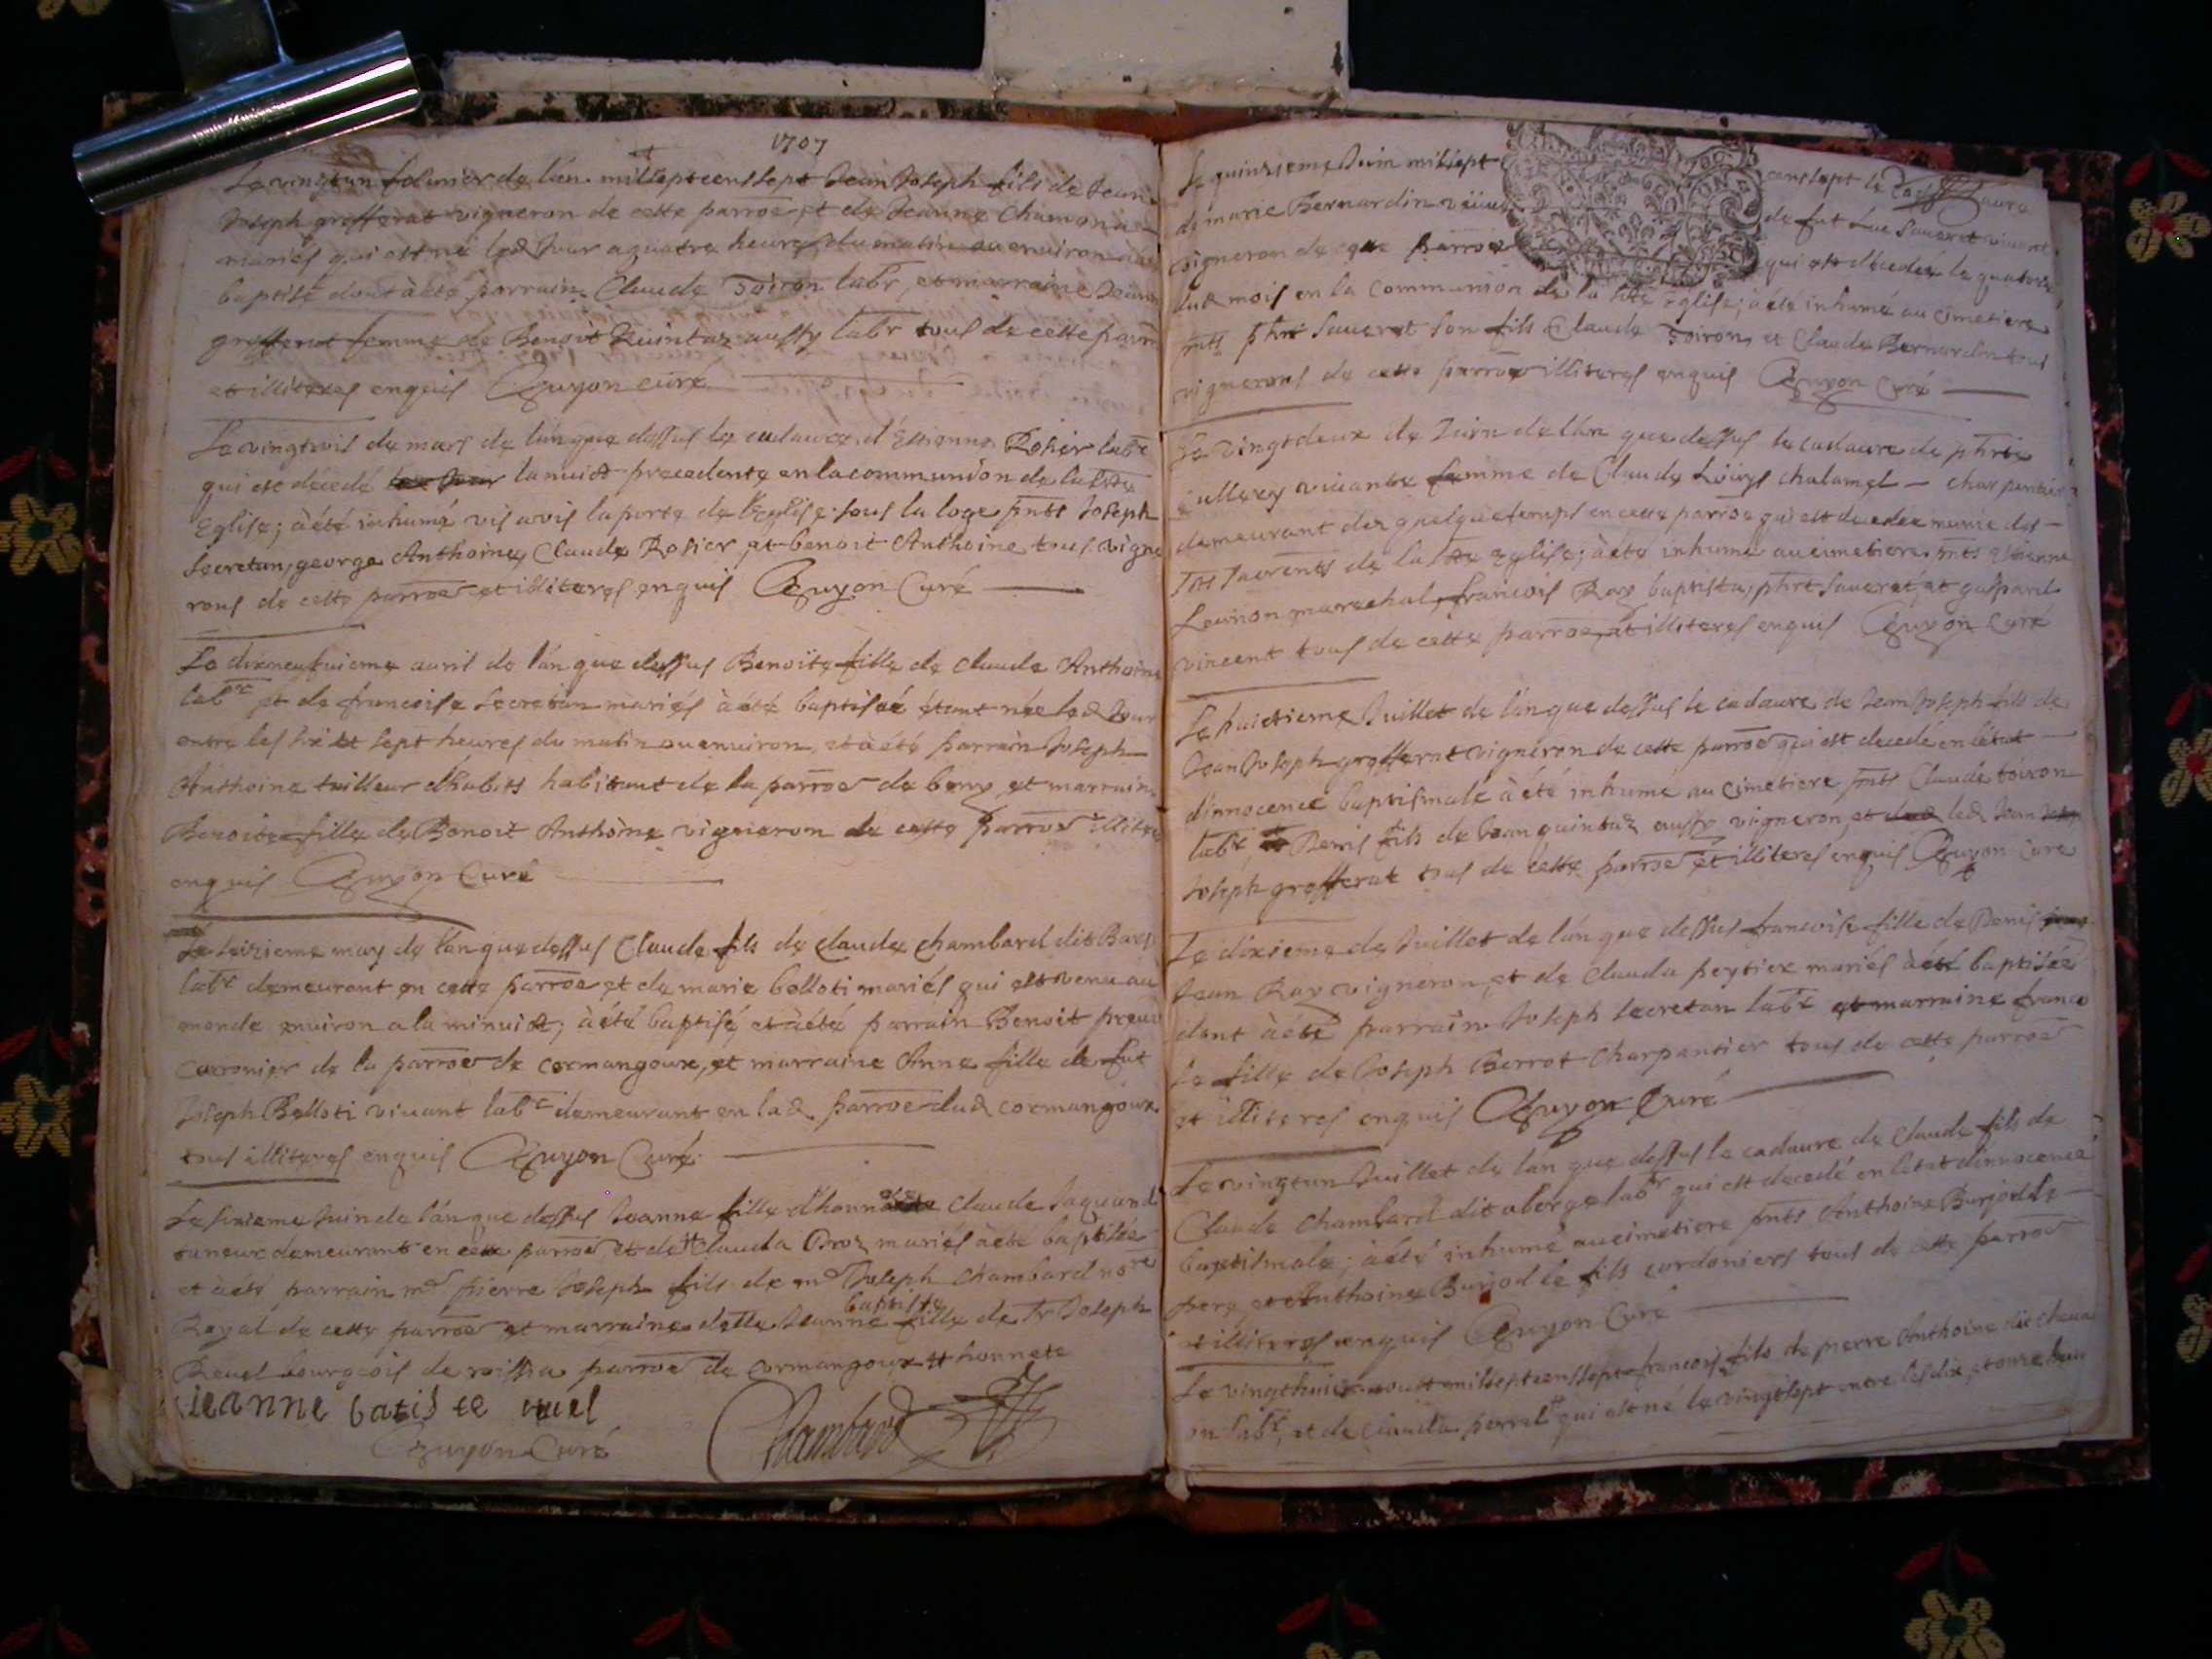 1707
Le vingtun febvrier de l'an mil sept cens sept Jean Joseph fils de Jean
Joseph grofferat vigneron de cette parroe et de Jeanne
mariés qui est né led Jour a quatre heures du matin ou environ a été
baptisé dont à été parrain Claude Toiron labr, et marraine Jeanne
grofferat femme de Benoit Quintaz aussy labr tous de cette parroe
et illiteres enquis Guyon curé
Le vingtrois de mars de l'an que dessus le cadavre d'Etienne Rosier labr
qui est décedé la nuict precedente en la communion de la ste
Eglise; à été inhumé vis avis la porte de l'Eglise sous la loge pnts Joseph
Secretan, george Anthoine, Claude Rosier, et benoit Anthoine tous vigne
rons de cette parroe et illiteres enquis Guyon Curé
Le dixneufuieme auril de l'an que dessus Benoite fille de Claude Anthoine
labr et de francoise Secretan mariés à été baptisée étant née led Jour
entre les six et sept heures du matin ou environ, et à été parrain Joseph
Anthoine tailleur d'habits habitant de la parroe de beny, et marraine
Benoite fille de Benoit Anthoine vigneron de cette parroe illiteres
enquis Guyon Curé
Le seizieme may de l'an que dessus Claude fils de Claude Chambard dit
labr demeurant en cette parroe et de marie belloti mariés qui est venu au
monde environ a la minuict; à été baptisé, et à été parrain Benoit
de la parroe de cormangoux, et marraine Anne fille de fut
Joseph Belloti vivant labr demeurant en lad parroe dud cormangoux
tous illiteres enquis Guyon Curé
Le sixieme Juin de l'an que dessus Jeanne fille d'honnete Claude Jaquand
taneur demeurant en cette parroe et de Clauda Broz mariés à été baptisée
et à été parrain mr pierre Joseph fils de mr Joseph Chambard nore
Royal de cette parroe et marraine delle Jeanne baptiste fille de Sr Joseph
Revel bourgeois de roissia parroe de cormangoux honnete
ieanne batiste ruel
Guyon Curé Chambard
Le quinzieme Juin mil sept cens sept le cadavre
de marie Bernardin veuve de fut Luc Saveret vivant
vigneron de cette parroe qui est décedée le quatorze
dud mois en la Communion de la ste Eglise; à été inhumé au cimetiere
pnts phrt Saveret son fils Claude Toiron, et Claude Bernardin tous
vignerons de cette parroe illiteres enquis Guyon Curé
Le vingtdeux de Juin de l'an que dessus le cadavre de phrte
cullerey vivante femme de Claude Loüys chalamel charpentier
demeurant dez quelque temps en cette parroe qui est decedée munie des
sts sacrents de la ste Eglise; à été inhumé au cimetiere pnts Etienne
Levrion marechal, francois Ray baptista, phrt Saveret, et gaspard
vincent tous de cette parroe, et illiteres enquis Guyon Curé
Le huictieme Juillet de l'an que dessus le cadavre de Jean Joseph fils de
Jean Joseph grofferat vigneron de cette parroe qui est decedé en l'etat
d'innocence baptismale à été inhumé au cimetiere pnts Claude toiron
labr, Denis fils de Jean quintaz aussy vigneron, et led Jean
Joseph grofferat tous de cette parroe et illiteres enquis Guyon Curé
Le dixieme de Juillet de l'an que dessus francoise fille de Denis
Jean Ray vigneron, et de Clauda peytier mariés à été baptisée
dont à été parrain Joseph Secretan labr et marraine franco
se fille de Joseph Berrot charpantier tous de cette parroe
et illiteres enquis Guyon Curé
Le vingtun Juillet de l'an que dessus le cadavre de Claude fils de
Claude Chambard dit aberge labr qui est decedé en l'etat d'innocence
baptismale; à été inhumé au cimetiere pnts Anthoine Burjod le
pere, et Anthoine Burjod le fils cordoniers tous de cette parroe
et illiteres enquis Guyon Curé
Le vingthuict aoust mil sept cens sept francois fils de pierre Anthoine dit
labr, et de Clauda perret qui est né le vingtsept entre les dix, et onze heu